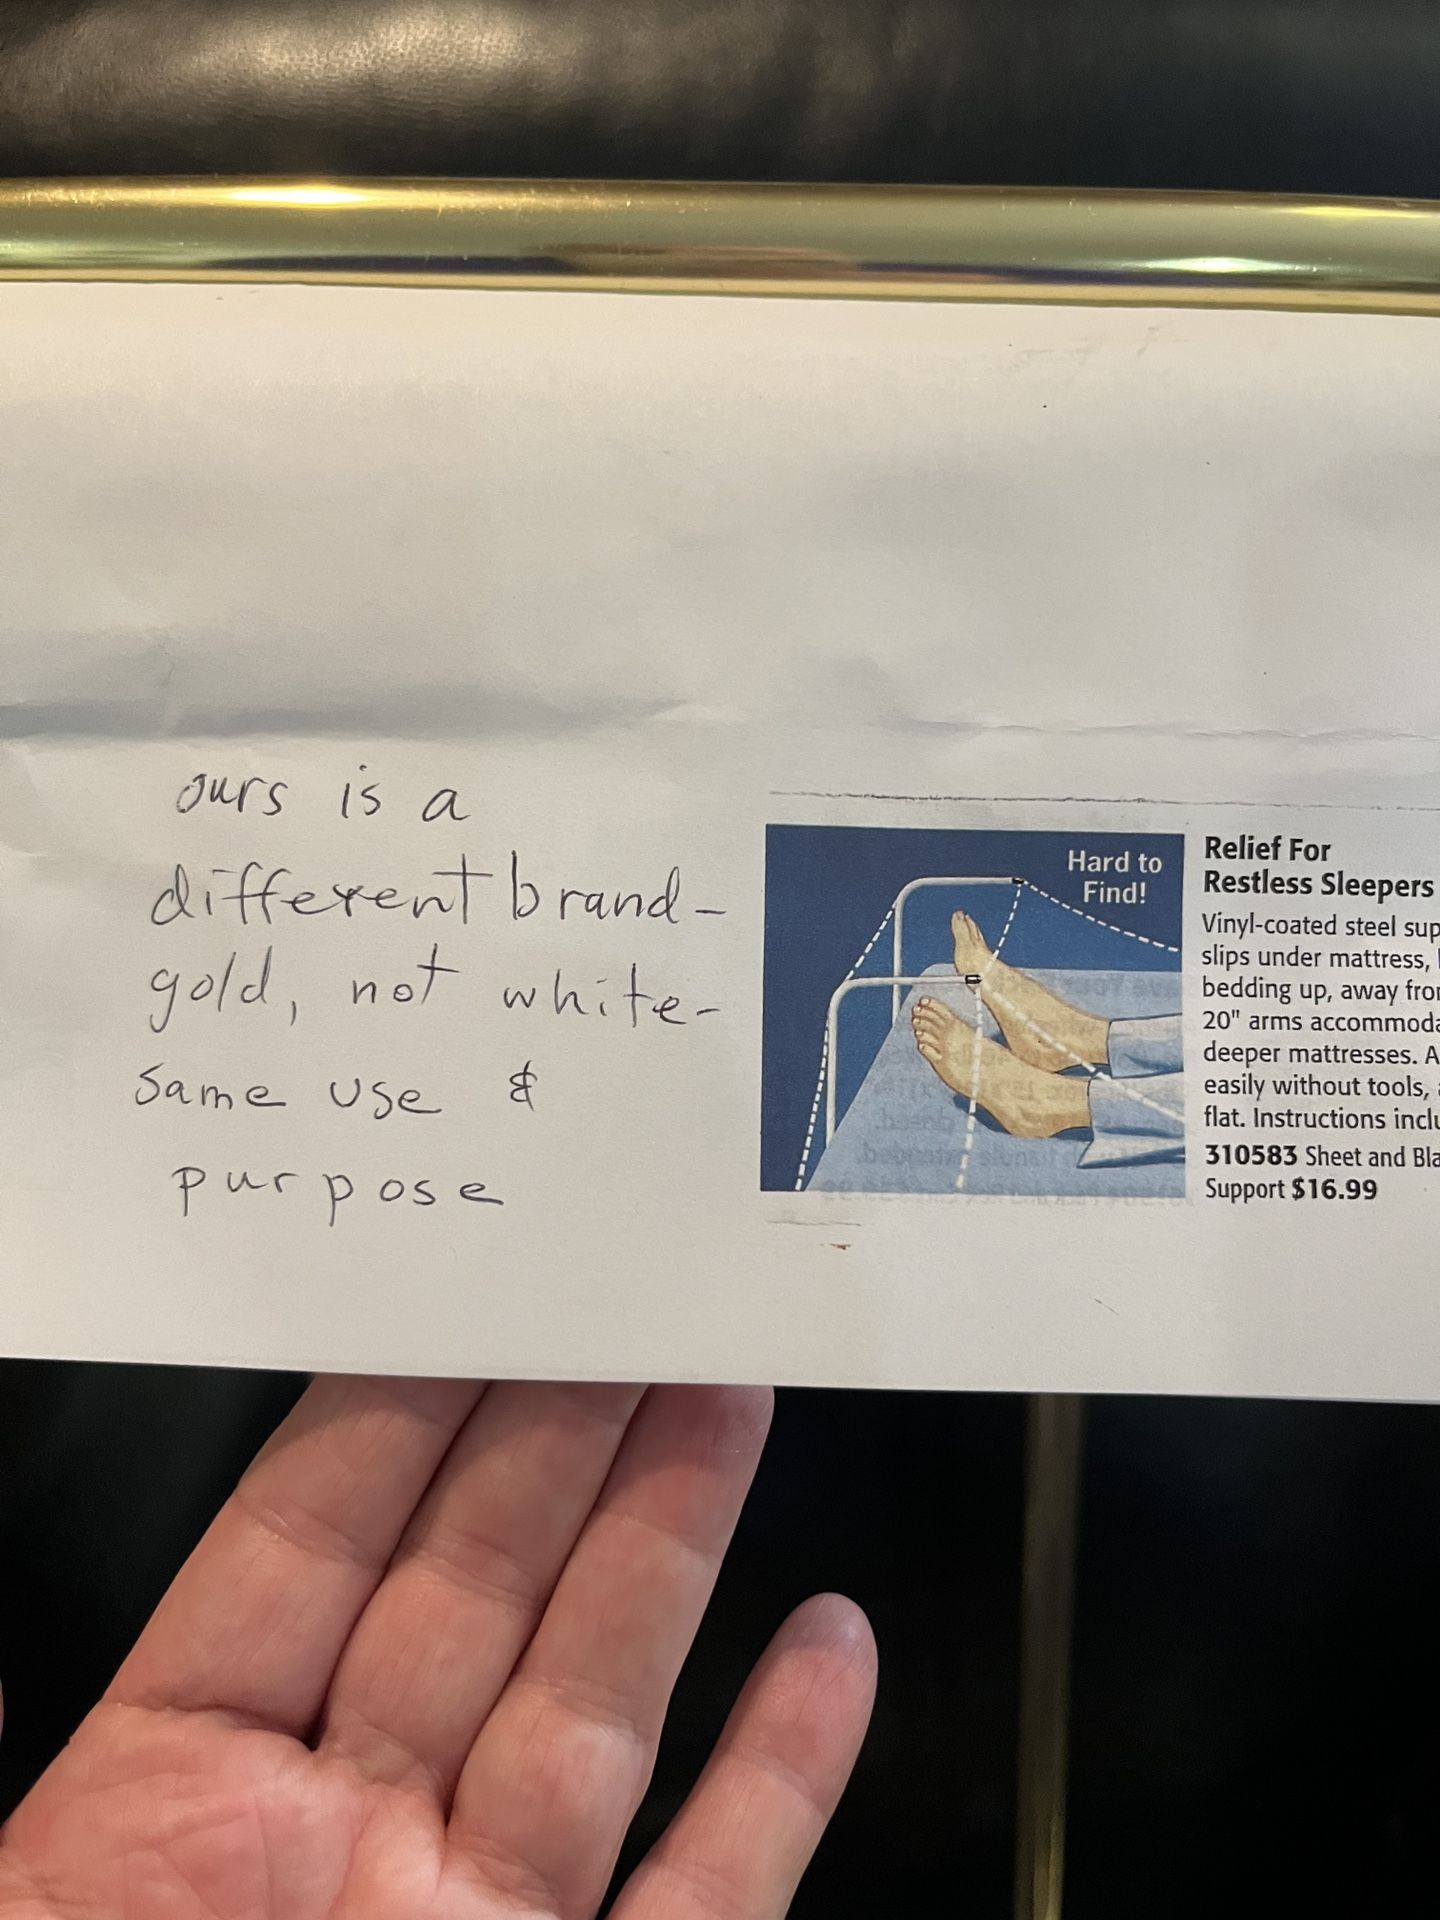 ours is a
different brand-
gold, not white-
same use &
purpose
Hard to
Find!
Relief For
Restless Sleepers
Vinyl-coated steel sup
slips under mattress,
bedding up, away fro
20" arms accommoda
deeper mattresses. A
easily without tools,
flat. Instructions inclu
310583 Sheet and Bla
Support $16.99